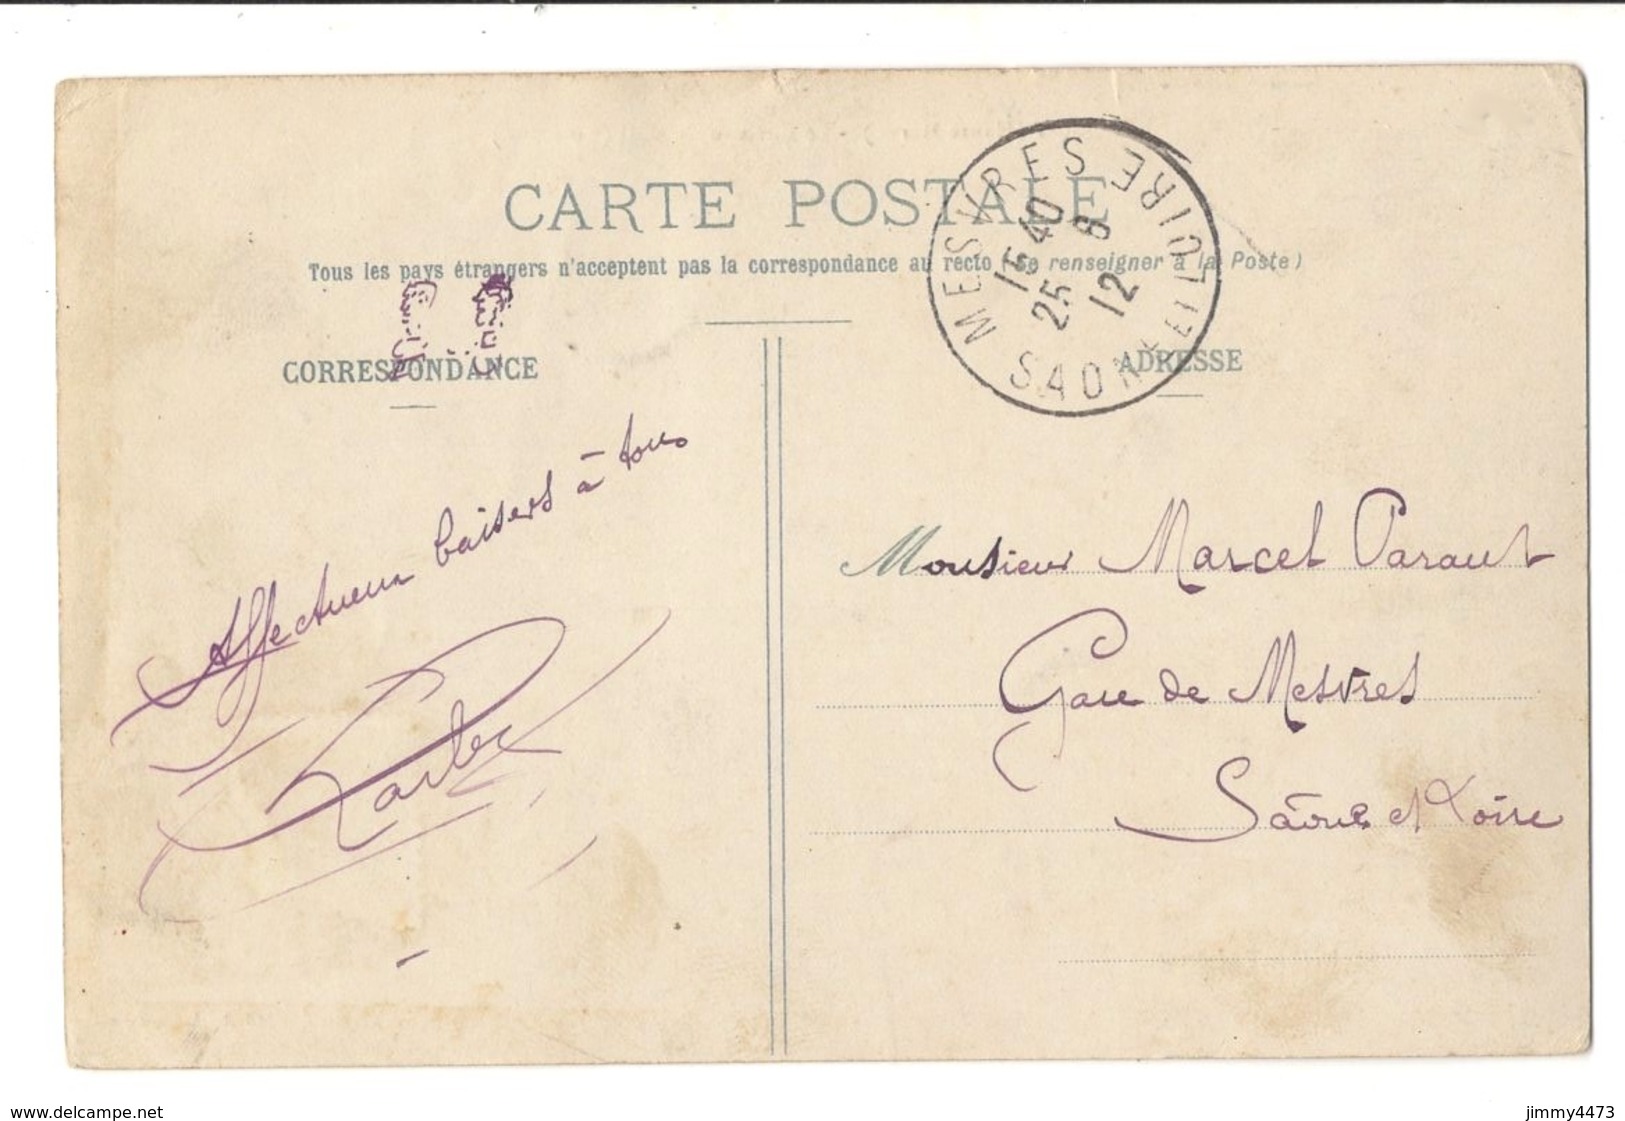 CARTE POSTALE
Tous les pays étrangers n'acceptent pas la correspondance au recto (Se renseigner à la Poste)
MESVRES
13 40
25 8
12
SAONE ET LOIRE
CORRESPONDANCE
ADRESSE
Affectueux baisers à tous
Monsieur Marcel Paraut
Gare de Mesvres
Sâone et Loire
delcampe.net
jimmy4473